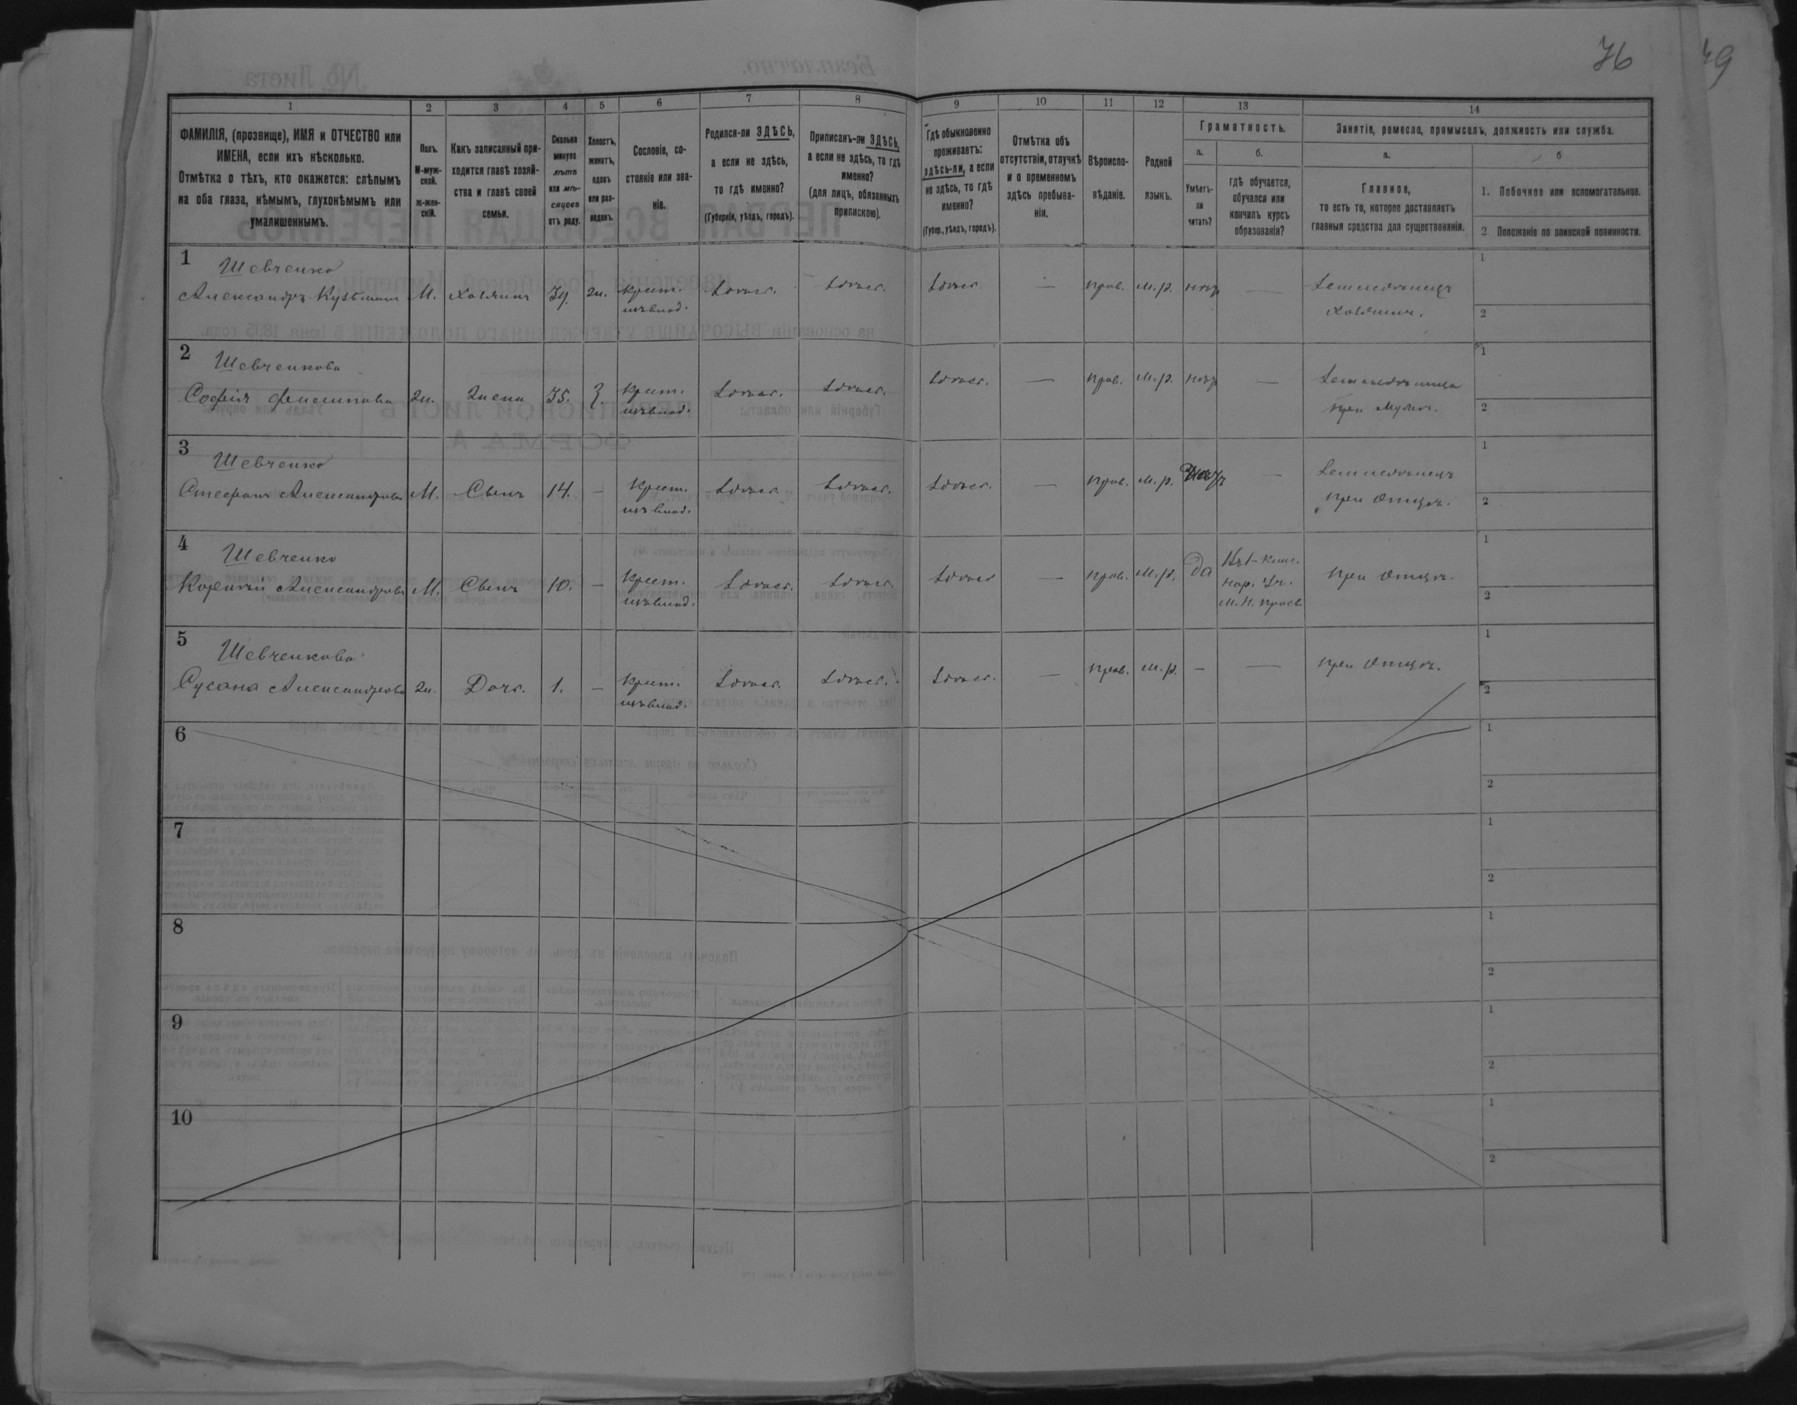 76
49
1 2 3 4 5 6 7 8 9 10 11 12 13 14
ФАМИЛІЯ, (прозвище), ИМЯ и ОТЧЕСТВО или
ИМЕНА, если ихъ нѣсколько.
Отмѣтка о тѣхъ, кто окажется: слѣпымъ
на оба глаза, нѣмымъ, глухонѣмымъ или
умалишеннымъ.
Полъ.
М-муж-
ской.
ж-жен-
скій.
Какъ записанный при-
ходится главѣ хозяй-
ства и главѣ своей
семьи.
Сколько
минуло
лѣтъ
или мѣ-
сяцевъ
отъ роду.
Холостъ,
женатъ,
вдовъ
или раз-
веденъ.
Сословіе, со-
стояніе или зва-
ніе.
Родился-ли ЗДѢСЬ,
а если не здѣсь,
то гдѣ именно?
(Губернія, уѣздъ, городъ).
Приписанъ-ли ЗДѢСЬ,
а если не здѣсь, то гдѣ
именно?
(для лицъ, обязанныхъ
припискою).
Гдѣ обыкновенно
проживаетъ:
здѣсь-ли, а если
не здѣсь, то гдѣ
именно?
(Губер., уѣздъ, городъ).
Отмѣтка объ
отсутствіи, отлучкѣ
и о временномъ
здѣсь пребыва-
ніи.
Вѣроиспо-
вѣданіе.
Родной
языкъ.
Грамотность.
а.
Умѣетъ-
ли
читать?
б.
гдѣ обучается,
обучался или
кончилъ курсъ
образованія?
Занятіе, ремесло, промыселъ, должность или служба.
а.
Главное,
то есть то, которое доставляетъ
главныя средства для существованія.
б
1. Побочное или вспомогательное.
2 Положеніе по воинской повинности.
1 Шевченко
Александръ Кузьминъ М. хозяинъ 39. ж. крест. здѣсь здѣсь здѣсь — прав. м.р. нѣтъ — Земледѣлецъ 1
хозяинъ. 2
2 Шевченкова
Софія Филипова ж. жена 35. З. крест. здѣсь здѣсь здѣсь. — прав. м.р. нѣтъ — Земледѣлица 1
при мужѣ. 2
3 Шевченко
Стефанъ Александровъ М. Сынъ 14. — крест. здѣсь здѣсь. здѣсь. прав. м.р. нѣтъ — Земледѣлецъ 1
при отцѣ. 2
4 Шевченко
Корнилій Александровъ М. Сынъ 10. — крест. здѣсь. здѣсь. здѣсь — прав. м.р. да нар. Уч. при отцѣ. 1
М. Н. просв. 2
5 Шевченкова
Сусана Александрова ж. Дочь. 1. — крест. здѣсь. здѣсь. здѣсь. — прав. м.р. — — при отцѣ. 1
2
6 1
2
7 1
2
8 1
2
9 1
2
10 1
2